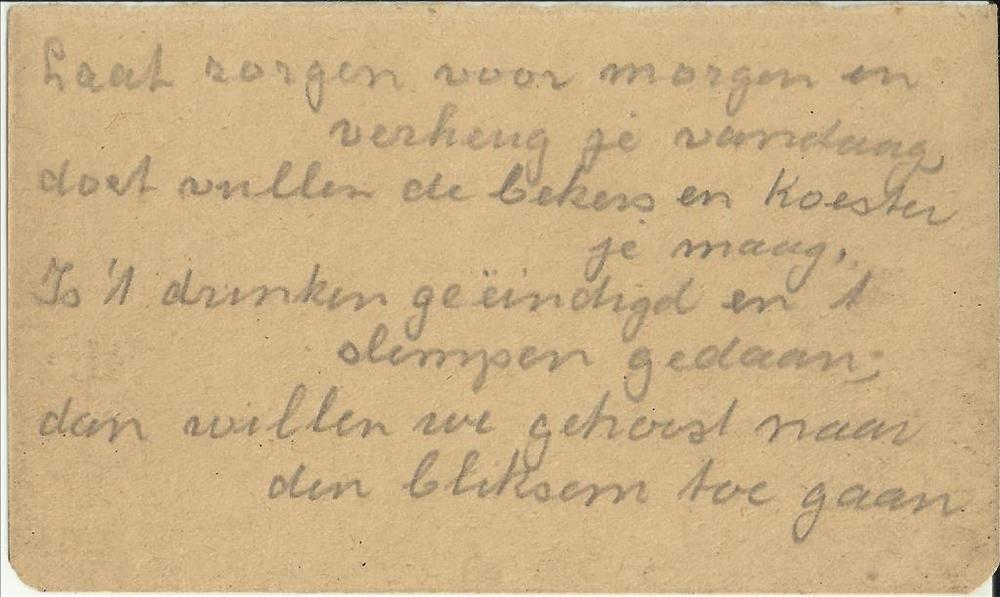 Laat zorgen voor morgen en
verheug je vandaag,
doet vullen de bekers en koester
je maag.
Is 't drinken geëindigd en 't
slempen gedaan;
dan willen we getroost naar
den bliksem toe gaan